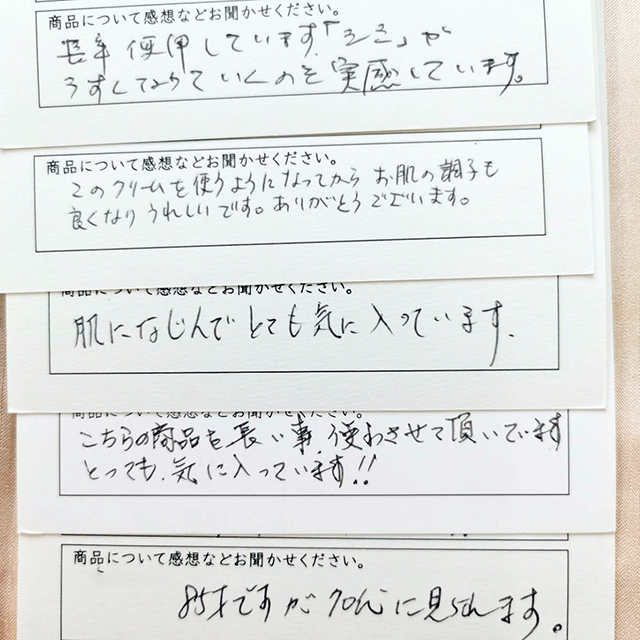 商品について感想などお聞かせください。
長年使用しています。「シミ」が
うすくなっていくのを実感しています。
商品について感想などお聞かせください。
このクリームを使うようになってから お肌の調子も
良くなり うれしいです。ありがとうございます。
商品について感想などお聞かせください。
肌になじんで とても 気に入っています.
商品について感想などお聞かせください。
こちらの商品を長い事、使わさせて頂いています
とっても、気に入っています!!
商品について感想などお聞かせください。
85才ですが70代に見られます。